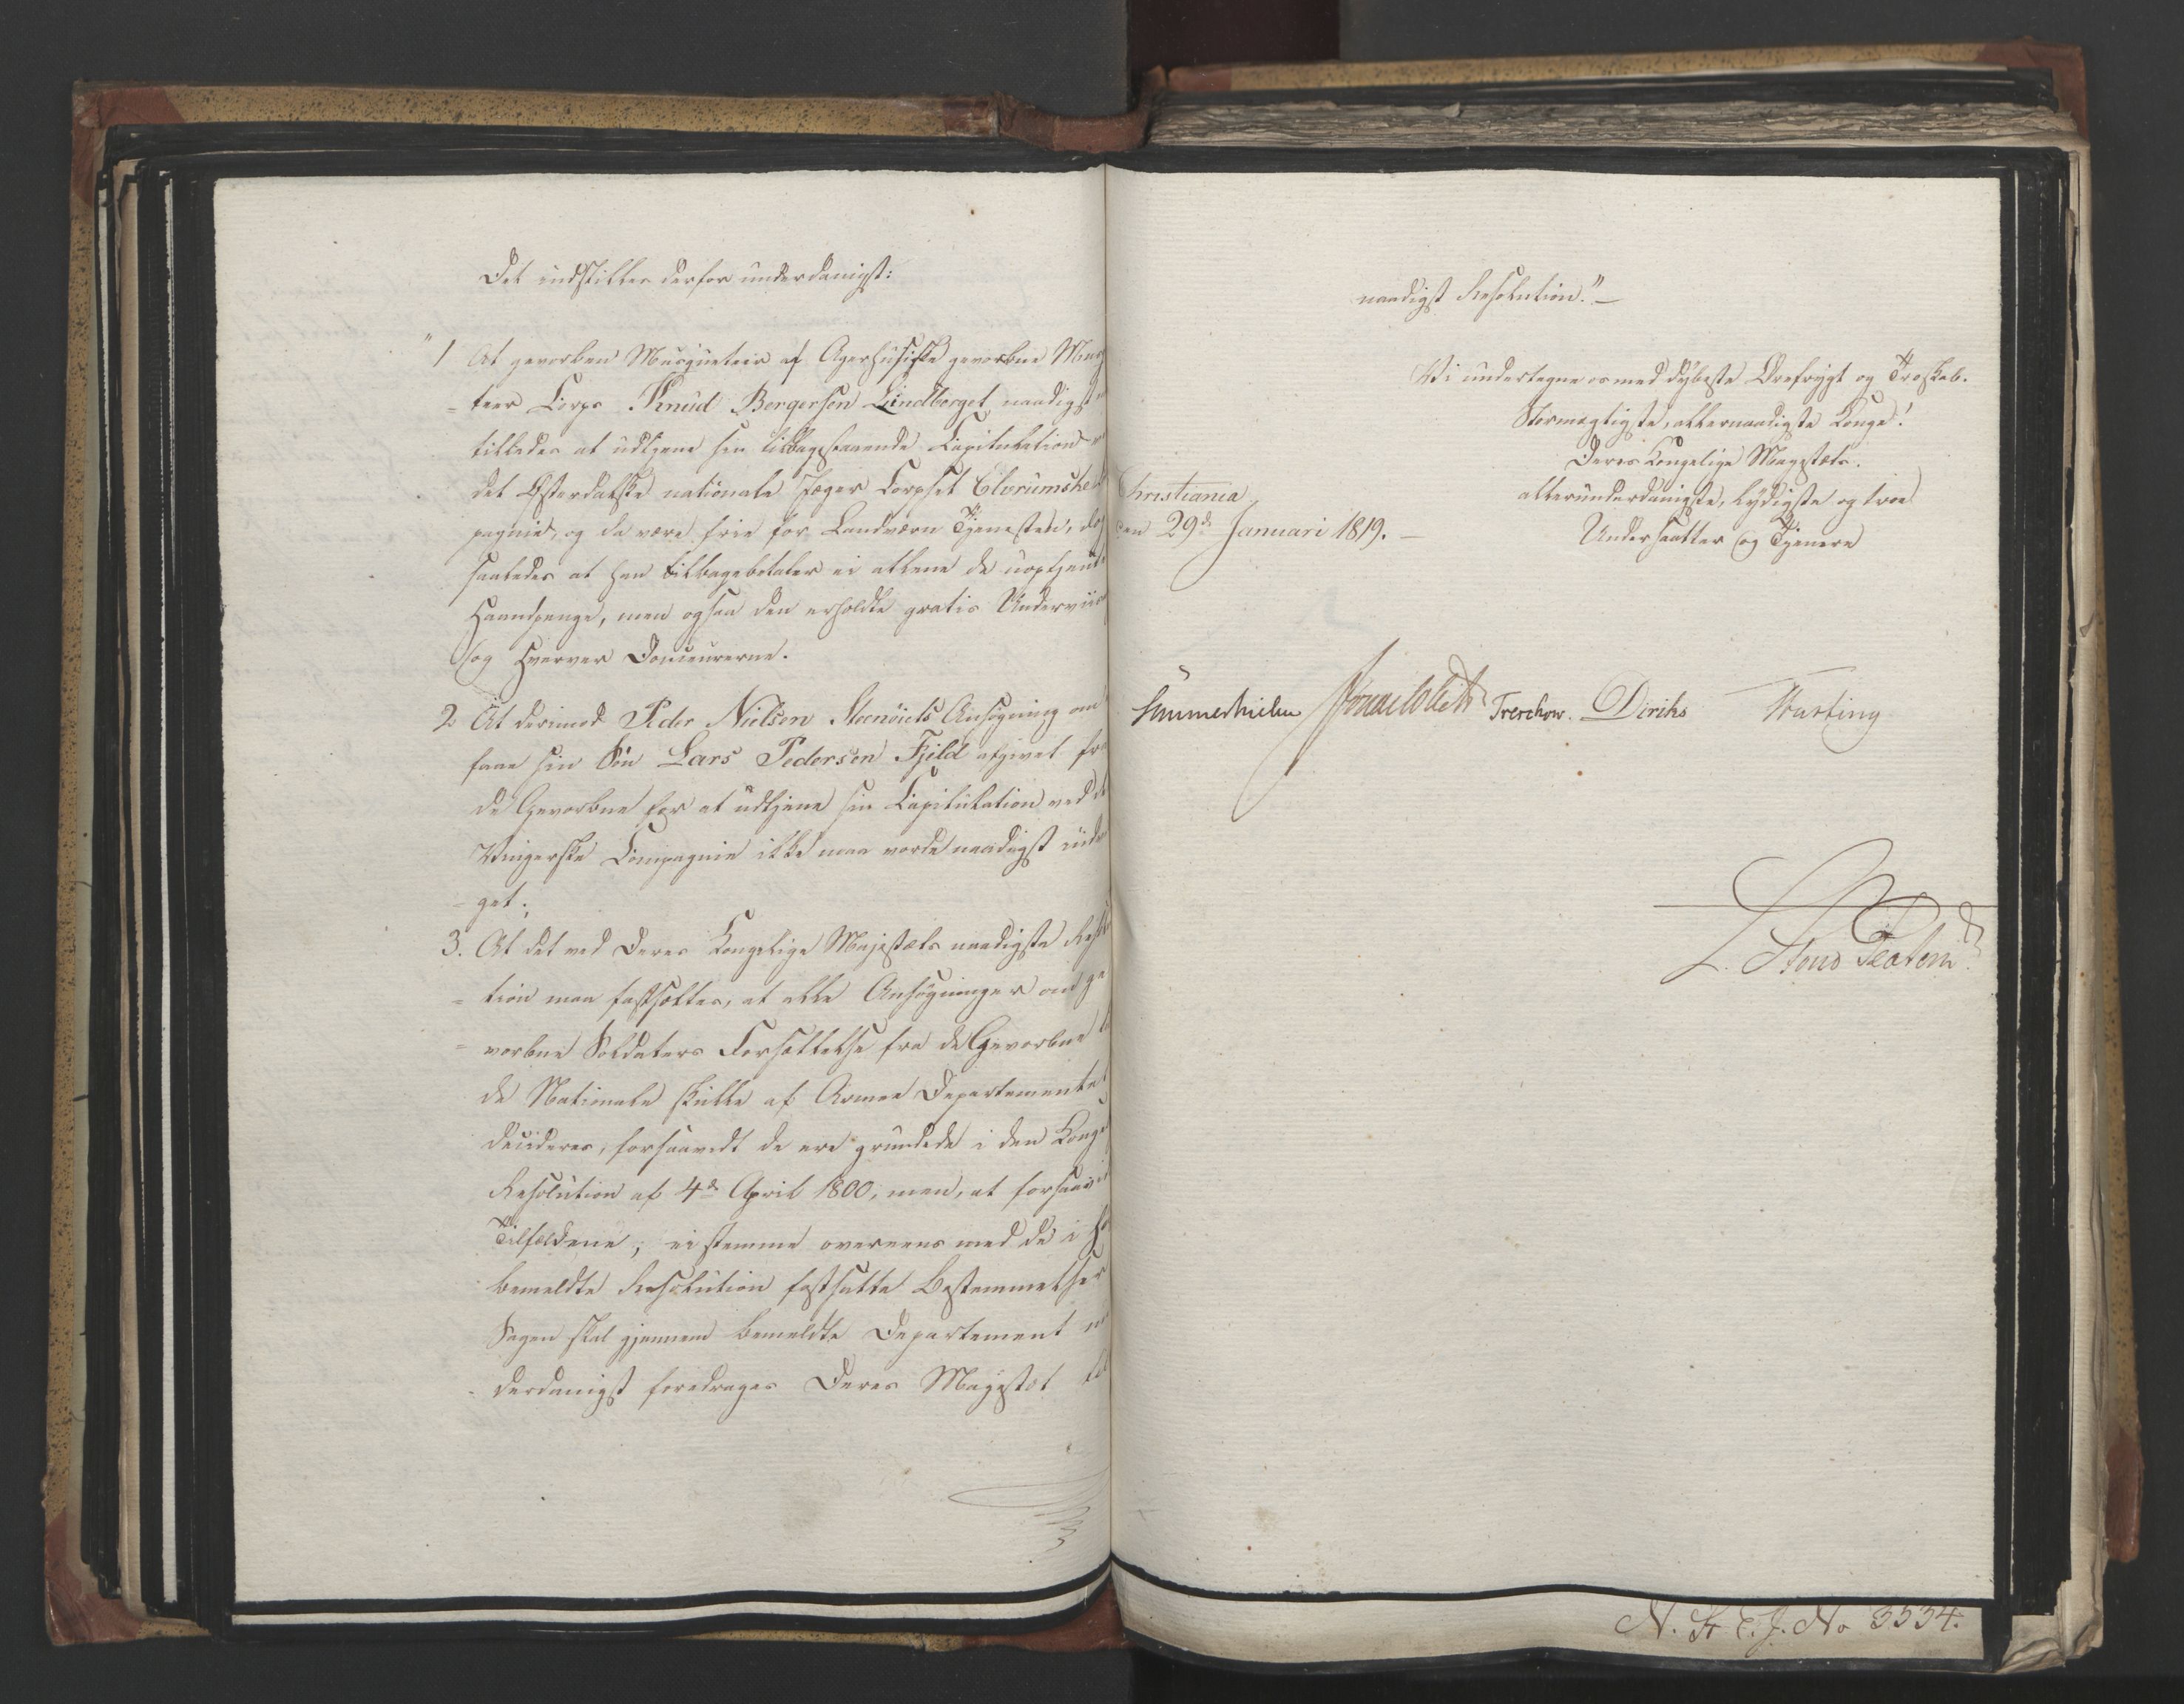 Det indstilles derfor underdanigst:
"1 At gevorben Musqueteer af Agershusiske gevorbne Musq
=teer Corps Knud Bergersen Lindberget naadigst
tillades at udtjene sin tilbagestaaende Capitulation
det Østerdalske nationale Jæger Corpset Elverumske
pagnie, og da være frie for Landværn Tjenesten, dog
saaledes at han tilbagebetaler ei allene de uoptjente
Haandpenge, men ogsaa den erholdte gratis Underviis
og Hverver Douceurerne.
2 At derimod Peder Nielsen Steenöiets Ansögning om
faae sin Sön Lars Pedersen Fjeld afgivet fra
de Gevorbne for at udtjene sin Capitulation ved det
Vingerske Compagnie ikke maa vorde naadigst ind
=get;
3. At det ved Deres Kongelige Majestæts naadigste Resolu
=tion maa fastsættes, at alle Ansögninger om ge
=vorbne Soldaters Forsættelse fra de Gevorbne
de Nationale skulle af Armee Departementet
decideres, forsaavidt de ere grundede i den Kongel
Resolution af 4de April 1800, men, at forsaavidt
Tilfældene, ei stemme overeens med de i
bemeldte Resolution fastsatte Bestemmelser
Sagen skal gjennem bemeldte Departement un
=derdanigst foredrages Deres Majestæt til
naadigst Resolution."—
Vi undertegne os med dybeste Ærefrygt og Troskab.
Stormægtigste, allernaadigste Konge!
Deres Kongelige Majestæts.
allerunderdanigste, lydigste og troe
Undersaatter og Tjenere
Christiania
den 29de Januari 1819.—
Sommerhielm Treschow. Diriks
L. Stoud Platou
N. St. C. J. No 3534.